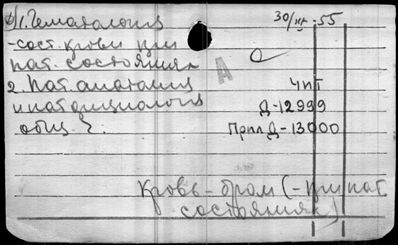 1. Гематология
30/III-55
-сост. крови при
пат. состояниях
А
2. Пат. анатомия
ЧПТ
и пат. физиология
Д-12999
общ.
Прпл Д-13000
Кровь-бром (-при пат.
состояниях)